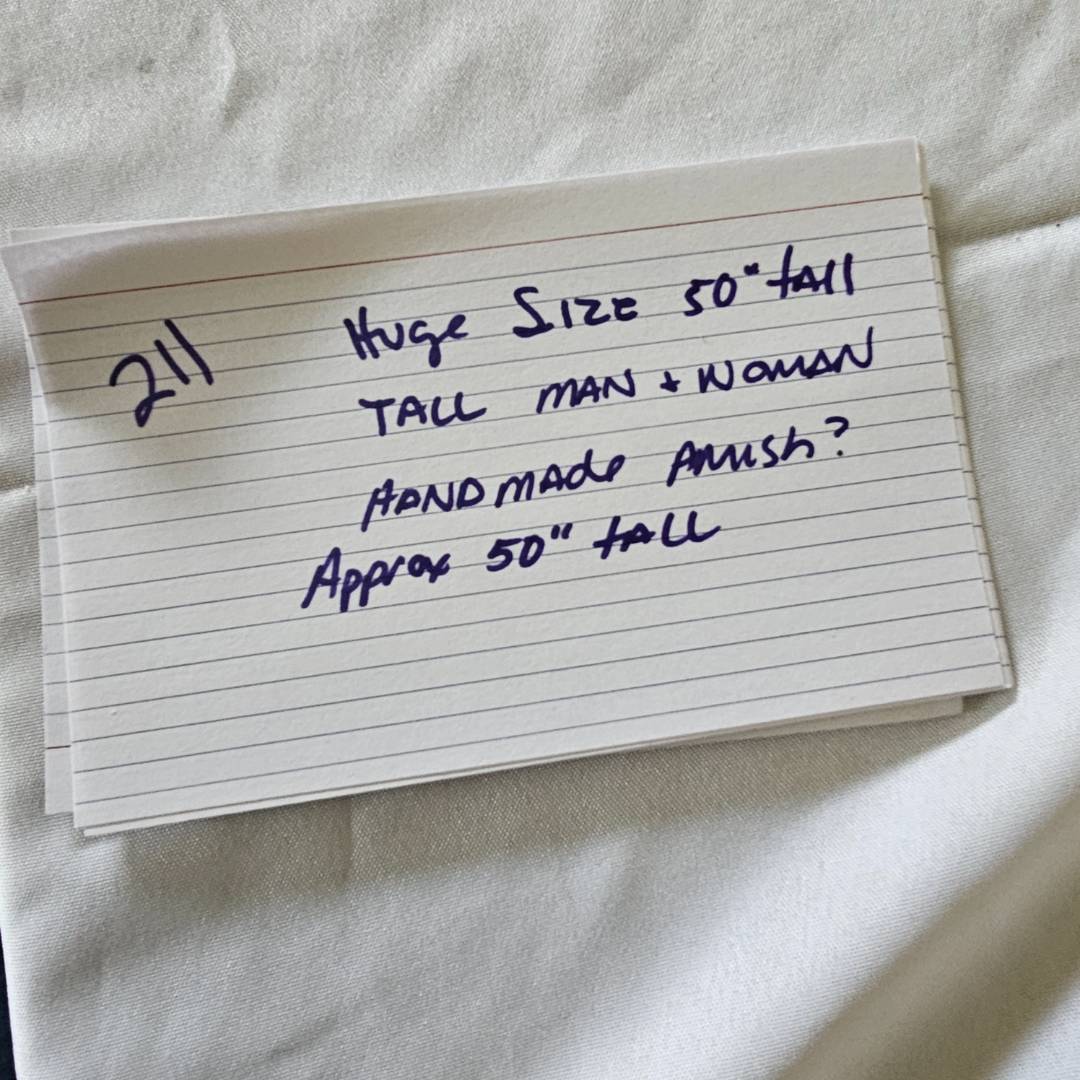 211 Huge SIZE 50" tAll
TALL MAN + WOMAN
HANDMADe AMish?
Approx 50" tALL